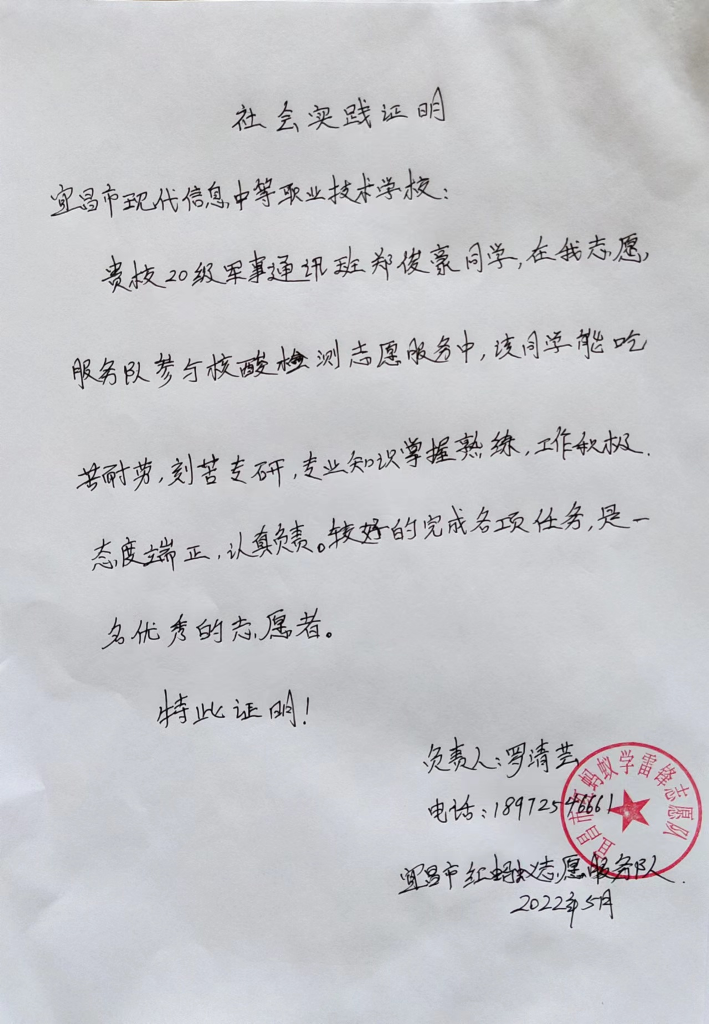 社会实践证明
宜昌市现代信息中等职业技术学校：
贵校20级军事通讯班郑俊豪同学，在我志愿
服务队参与核酸检测志愿服务中，该同学能吃
苦耐劳，刻苦专研，专业知识掌握熟练，工作积极．
态度端正，认真负责。较好的完成各项任务，是一
名优秀的志愿者。
特此证明！
负责人：罗清芸
电话：18972546661
宜昌市红蚂蚁志愿服务队．
2022年5月
宜昌市红蚂蚁学雷锋志愿队